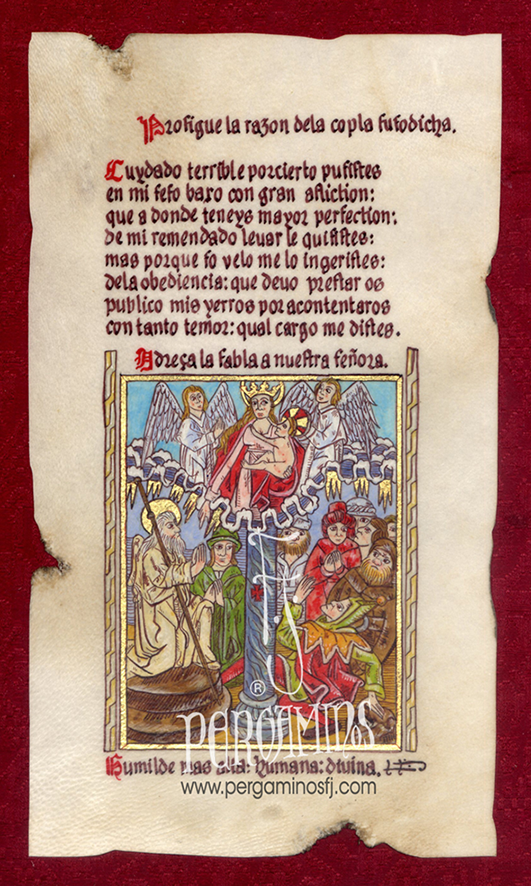 Proſigue la razon dela copla ſuſodicha.
Cuydado terrible porcierto puſiſtes
en mi ſeſo baxo con gran afliction:
que a donde teneys mayor perfection:
de mi remendado leuar le quiſiſtes:
mas porque ſo velo me lo ingeriſtes:
dela obediencia: que deuo preſtar os
publico mis yerros por acontentaros
con tanto temor: qual cargo me diſtes.
Adreça la fabla a nueſtra ſeñora.
FJ
®
PERGAMINOS
Humilde mas alta: humana: divina.
www.pergaminosfj.com